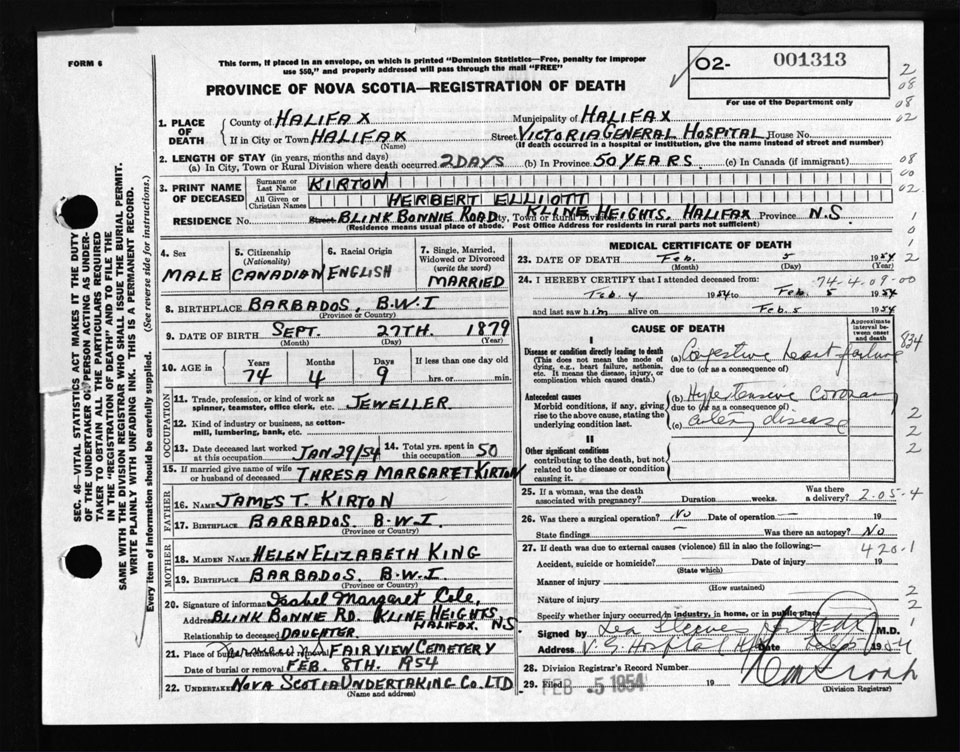 FORM 6
This form, if placed in an envelope, on which is printed "Dominion Statistics—Free, penalty for improper
use $50," and properly addressed will pass through the mail "FREE"
O2- 001313
For use of the Department only
PROVINCE OF NOVA SCOTIA—REGISTRATION OF DEATH
2
08
08
02
08
00
02
1
0
1
2
1. PLACE OF DEATH
County of HALIFAX Municipality of HALIFAX
If in City or Town HALIFAX Street VICTORIA GENERAL HOSPITAL House No.
(Name) (If death occurred in a hospital or institution, give the name instead of street and number)
2. LENGTH OF STAY (in years, months and days)
(a) In City, Town or Rural Division where death occurred 2 DAYS (b) In Province 50 YEARS (c) In Canada (if immigrant)
3. PRINT NAME OF DECEASED
Surname or Last Name KIRTON
All Given or Christian Names HERBERT ELLIOTT
RESIDENCE No. Street BLINK BONNIE ROAD City, Town or Rural Division KLINE HEIGHTS, HALIFAX Province N.S.
(Residence means usual place of abode. Post Office Address for residents in rural parts not sufficient)
4. Sex
MALE
5. Citizenship
(Nationality)
CANADIAN
6. Racial Origin
ENGLISH
7. Single, Married,
Widowed or Divorced
(write the word)
MARRIED
8. BIRTHPLACE BARBADOS, B.W.I
(Province or Country)
9. DATE OF BIRTH SEPT. 27TH. 1879
(Month) (Day) (Year)
10. AGE in
Years Months Days If less than one day old
74 4 9 hrs. or min.
OCCUPATION
11. Trade, profession, or kind of work as
spinner, teamster, office clerk, etc. JEWELLER.
12. Kind of industry or business, as cotton-
mill, lumbering, bank, etc.
13. Date deceased last worked
at this occupation JAN 29/54
14. Total yrs. spent in
this occupation 50
15. If married give name of wife
or husband of deceased THRESA MARGARET KIRTON
FATHER
16. Name JAMES T. KIRTON
17. Birthplace BARBADOS. B.W.I.
(Province or Country)
MOTHER
18. MAIDEN NAME HELEN ELIZABETH KING
19. BIRTHPLACE BARBADOS, B.W.I
(Province or Country)
20. Signature of informant Isabel Margaret Cole,
Address BLINK BONNIE RD. KLINE HEIGHTS,
HALIFAX. N.S
Relationship to deceased DAUGHTER.
21. Place of burial, cremation or removal FAIRVIEW CEMETERY
Date of burial or removal FEB. 8TH. 1954
22. UNDERTAKER NOVA SCOTIA UNDERTAKING CO. LTD
(Name and address)
MEDICAL CERTIFICATE OF DEATH
23. DATE OF DEATH Feb. 5 1954
(Month) (Day) (Year)
24. I HEREBY CERTIFY that I attended deceased from: 74-4-09-00
Feb 4 1954 to Feb 5 1954
and last saw him alive on Feb. 5 1954
CAUSE OF DEATH
Approximate interval between onset and death
834
I
Disease or condition directly leading to death
(This does not mean the mode of
dying, e.g., heart failure, asthenia,
etc. It means the disease, injury, or
complication which caused death.
(a) Congestive heart failure
due to (or as a consequence of)
Antecedent causes
Morbid conditions, if any, giving
rise to the above cause, stating the
underlying condition last.
(b) Hypertensive Coronary
due to (or as a consequence of)
(c) artery disease
2
2
2
II
Other significant conditions
contributing to the death, but not
related to the disease or condition
causing it.
25. If a woman, was the death
associated with pregnancy? Duration weeks. Was there
a delivery? 2.05-4
26. Was there a surgical operation? No Date of operation — 19
State findings — Was there an autopsy? No
27. If death was due to external causes (violence) fill in also the following:— 420.1
Accident, suicide or homicide? Date of injury 19
(State which)
Manner of injury
(How sustained)
Nature of injury
Specify whether injury occurred in industry, in home, or in public place
2
2
1
2
Signed by M.D.
Address V.G. Hospital Date 1954
28. Division Registrar's Record Number
29. Filed FEB 5 1954 19
(Division Registrar)
SEC. 46—VITAL STATISTICS ACT MAKES IT THE DUTY
OF THE UNDERTAKER OR PERSON ACTING AS UNDER-
TAKER TO OBTAIN ALL THE PARTICULARS REQUIRED
IN THE "REGISTRATION OF DEATH" AND TO FILE THE
SAME WITH THE DIVISION REGISTRAR WHO SHALL ISSUE THE BURIAL PERMIT.
WRITE PLAINLY WITH UNFADING INK. THIS IS A PERMANENT RECORD.
Every item of information should be carefully supplied. (See reverse side for instructions.)